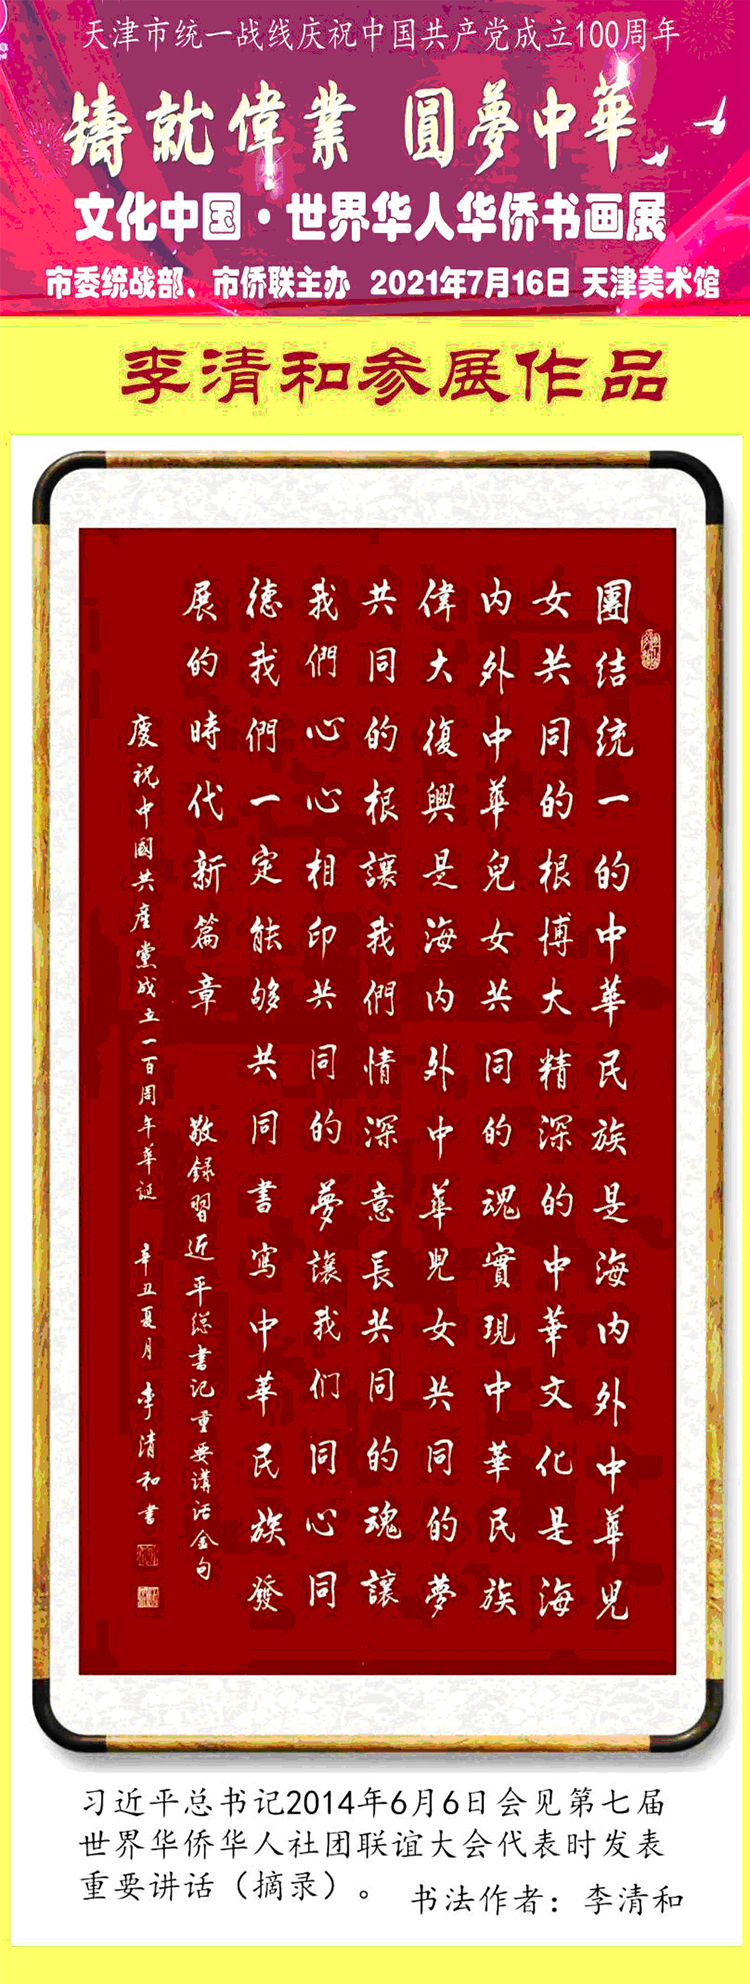 天津市统一战线庆祝中国共产党成立100周年
铸就偉業 圓夢中華
文化中国·世界华人华侨书画展
市委统战部、市侨联主办 2021年7月16日 天津美术馆
李清和参展作品
團结统一的中華民族是海内外中華兒
女共同的根博大精深的中華文化是海
内外中華兒女共同的魂實現中華民族
偉大復興是海内外中華兒女共同的夢
共同的根讓我們情深意長共同的魂讓
我們心心相印共同的夢讓我们同心同
德我們一定能够共同書寫中華民族發
展的時代新篇章 敬録習近平總書记重要講话金句
慶祝中國共産黨成立一百周年華誕 辛丑夏月 李清和書
习近平总书记2014年6月6日会见第七届
世界华侨华人社团联谊大会代表时发表
重要讲话（摘录）。 书法作者：李清和